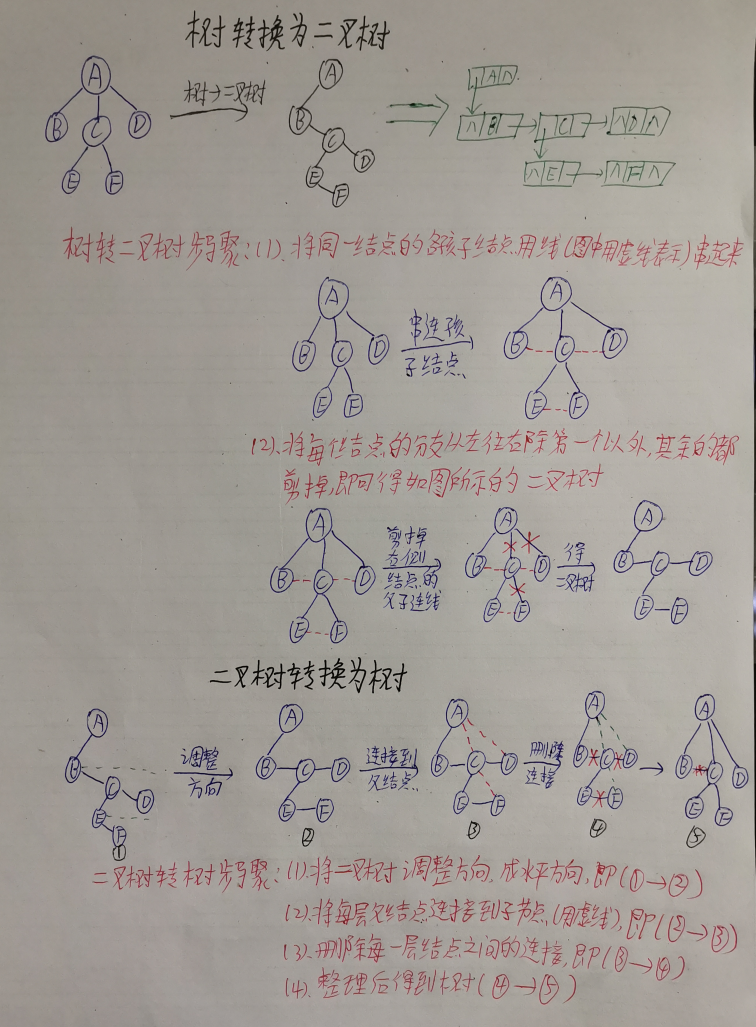 树转换为二叉树
A
B C D
E F
树→二叉树
A
B
C
D
E
F
A ∧
∧ B
C
∧ D ∧
∧ E
∧ F ∧
树转二叉树步骤:(1).将同一结点的各孩子结点用线(图中用虚线表示)串起来
A
B C D
E F
串连孩
子结点
A
B C D
E F
(2).将每个结点的分支从左往右除第一个以外,其余的都
剪掉,即可得如图所示的二叉树
A
B C D
E F
剪掉
右侧
结点的
父子连线
A
B C D
E F
得
二叉树
A
B C D
E F
二叉树转换为树
A
B
C
D
E
F
①
调整
方向
A
B C D
E F
②
连接到
父结点
A
B C D
E F
③
删除
连接
A
B C D
E F
④
A
B C D
E F
⑤
二叉树转树步骤:(1).将二叉树调整方向,成水平方向,即(①→②)
(2).将每层父结点连接到子节点,(用虚线),即(②→③)
(3).删除每一层结点之间的连接,即(③→④)
(4).整理后得到树(④→⑤)